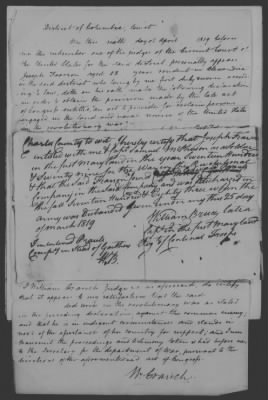 District of Columbia Court
On this sixth day of April 1819 before
me the subscriber one of the judges of the Circuit Court of
the United States for the said district personally appears
Joseph Fearson aged 58 years resident in Alexandria
in the said district who being by me first duly sworn accord-
ing to law, doth on his oath make the following declaration
in order to obtain the provision made by the late act
of Congress entitled an act to provide for certain persons
engaged in the land and naval service of the United States
in the revolutionary war
Charles County to wit I hereby certify that Joseph Fearson
enlisted with me and Samuel McPherson as a soldier
in the first Maryland in the year Seventeen hundred
& Seventy nine for the War in the first
& that the said Fearson
Company in the land and was discharged in
the fall Seventeen hundred & Eighty three when the
army was disbanded given under my hand this 25 day
of March 1819
William Bruce, late a
Capt. in the first Maryland
Reg. of Continental Troops
WB
I William Cranch Judge as aforesaid do certify
that it appears to my satisfaction that the said
did serve in the revolutionary war as stated
in the preceding declaration against the common enemy,
and that he is in indigent circumstances and stands in
need of the assistance of his country for support; and I now
transmit the proceedings and testimony taken and had before me
to the Secretary for the department of war pursuant to the
directions of the aforementioned act of Congress.
W. Cranch